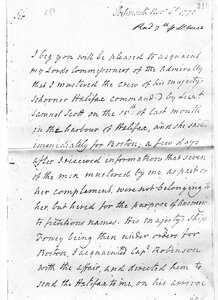 Sir
Portsmouth
Read 7th
I beg you will be pleased to acquaint
my Lords Commissioners of the Admiralty
that I mustered the crew of his majesty's
schooner Halifax command'd by Lieut
Samuel Scott on the 15th of last month
in the harbour of Halifax, and she sailed
immediately for Boston, a few days
after I received information that seven
of the men mustered by me, as part of
her complement, were not belonging to
her, but hired for the purpose of answering
to fictitious names. His majesty's ship
Fowey being then under orders for
Boston, I acquainted Capt Robinson
with the affair, and directed him to
send the Halifax to me, on his arrival